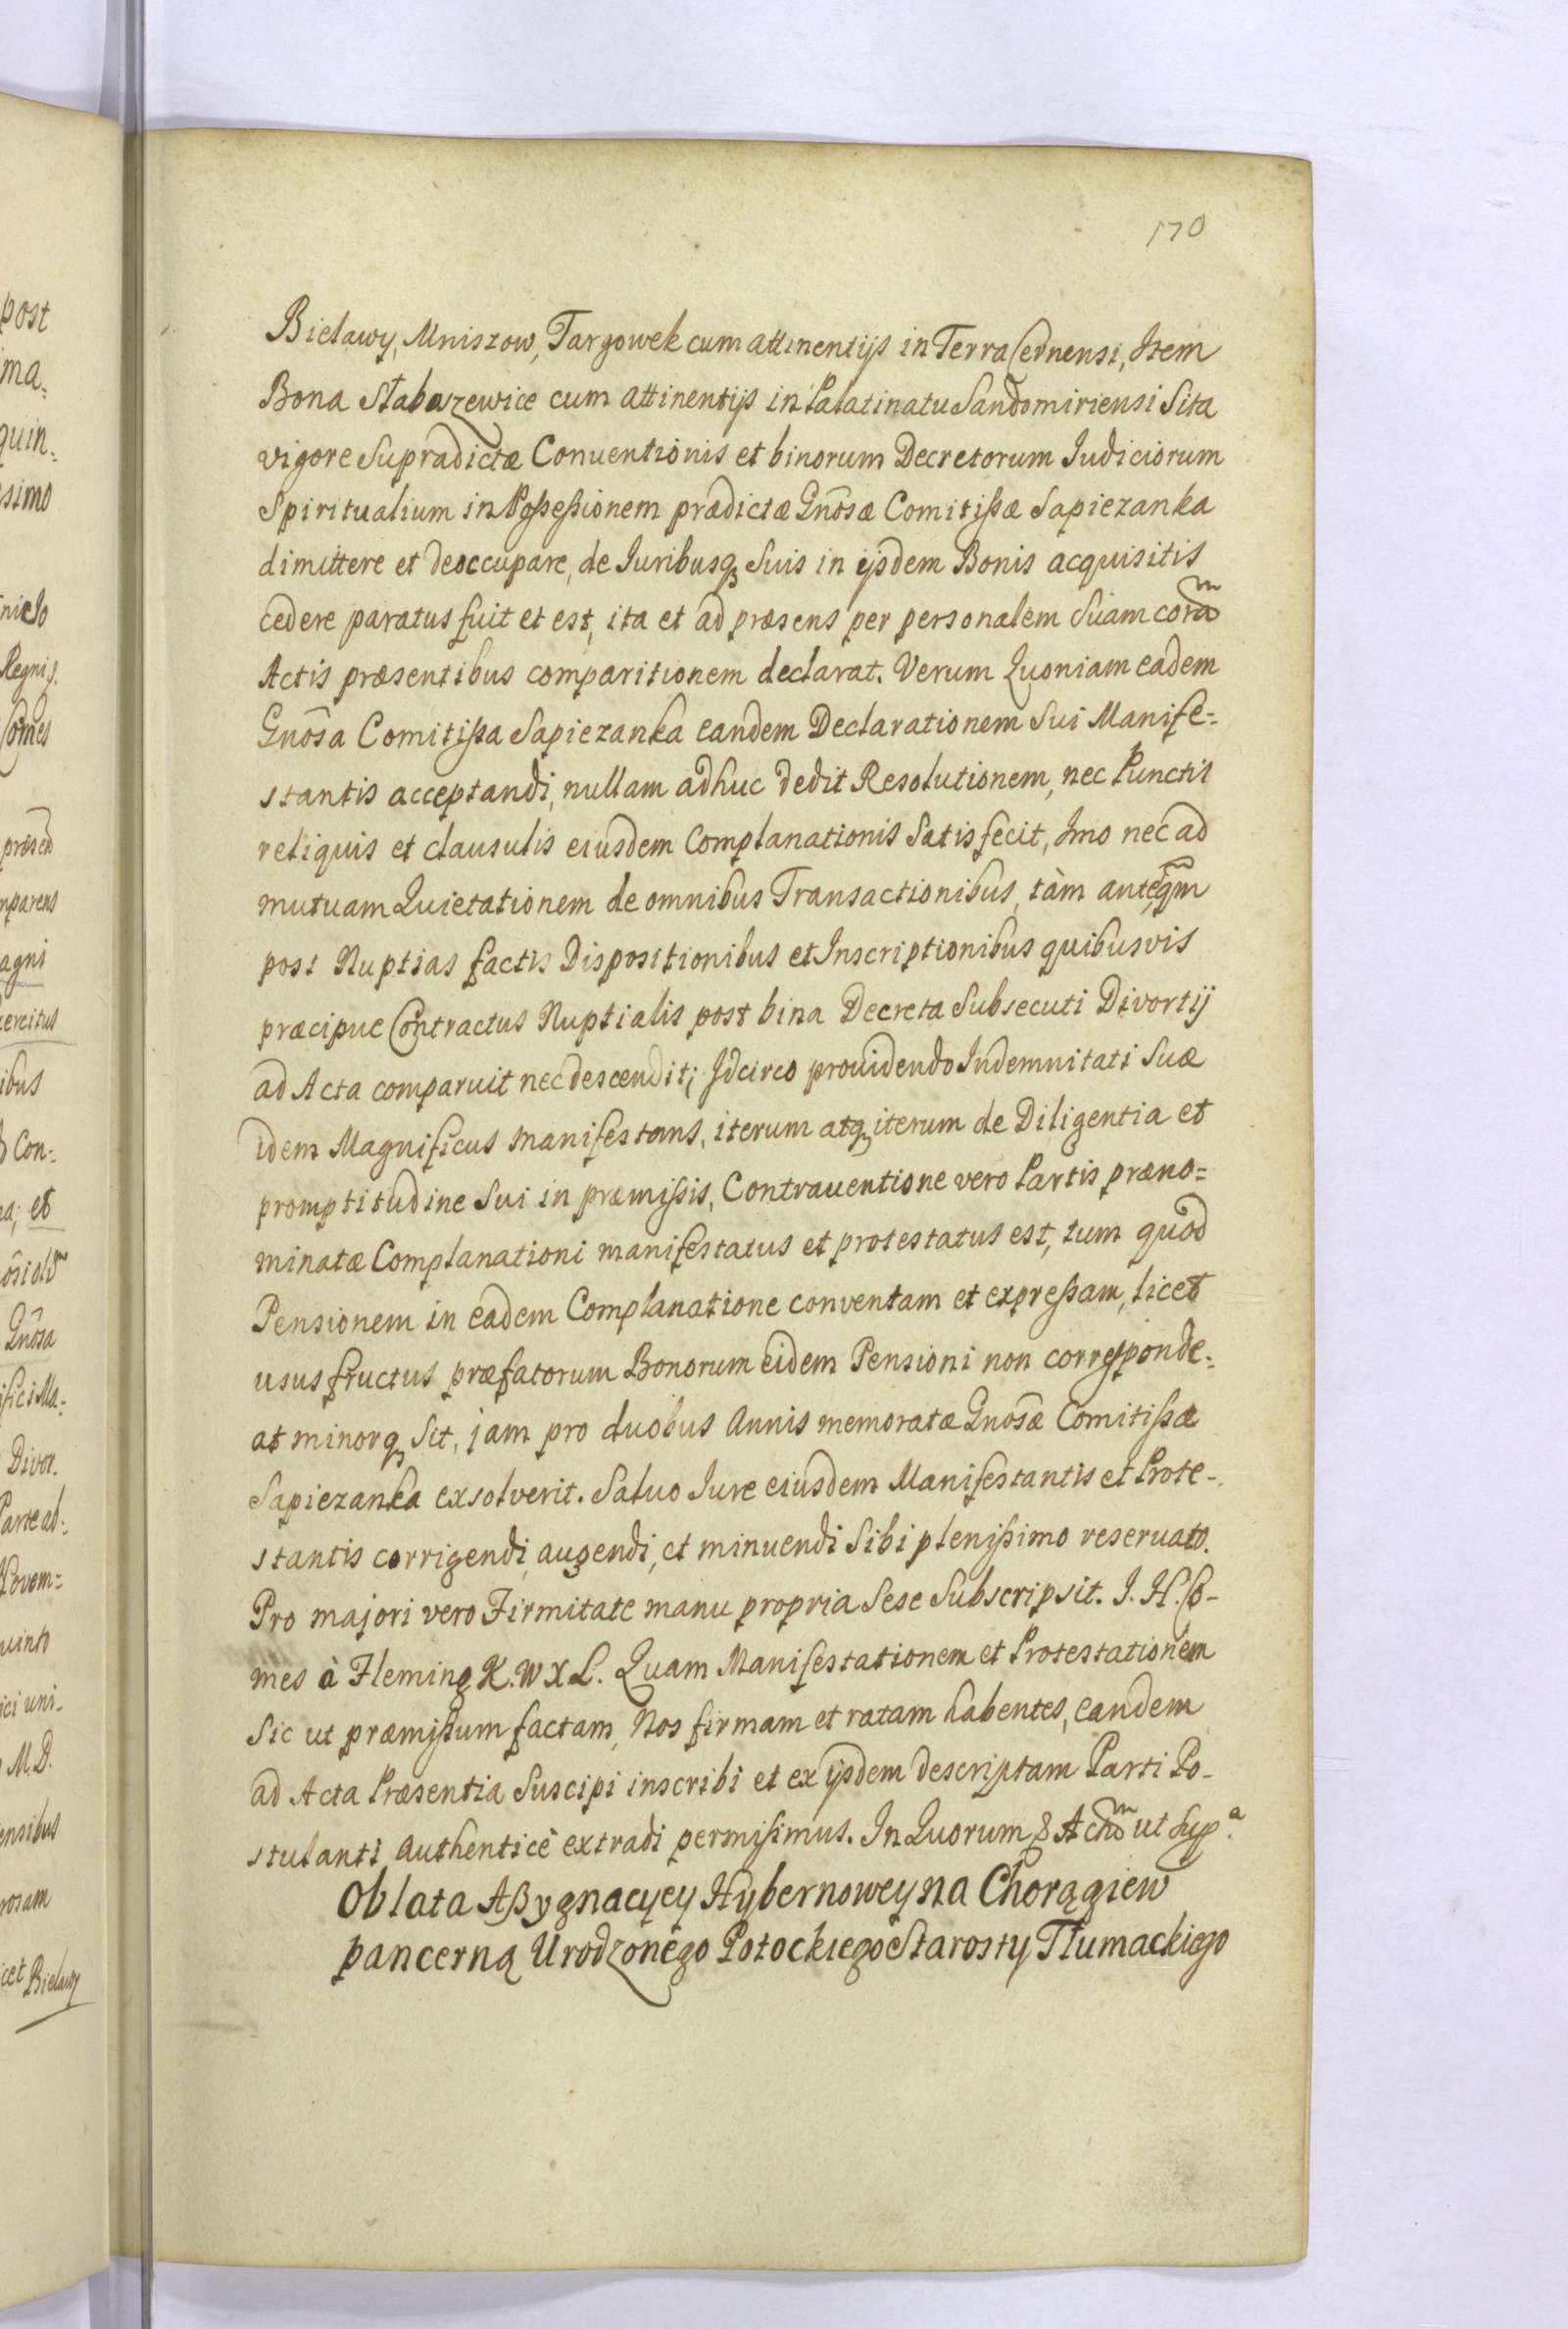 170
Bielawy, Mniszow, Targowek cum attinentijs in Terra Cernensi, Item
Bona Słabuszewice cum attinentijs in Palatinatu Sandomiriensi Sita
vigore Supradictæ Conuentionis et binorum Decretorum Judiciorum
Spiritualium in Possessionem prædictæ Gnosæ Comitissæ Sapiezanka
dimittere et deoccupare, de Iuribusq Suis in ijsdem Bonis acquisitis
cedere paratus fuit et est, ita et ad præsens per personalem Suam coram
Actis præsentibus comparitionem declarat. Verum Quoniam eadem
Gnosa Comitissa Sapiezanka eandem Declarationem Sui Manife=
stantis acceptandi, nullam adhuc dedit Resolutionem, nec Punctis
reliquis et clausulis eiusdem Complanationis Satisfecit, Imo nec ad
mutuam Quietationem de omnibus Transactionibus, tàm ante, qm
post Nuptias factis Dispositionibus et Inscriptionibus quibusvis
præcipue Contractus Nuptialis post bina Decreta Subsecuti Divortij
ad Acta comparuit nec descendit; Idcirco prouidendo Indemnitati Suæ
idem Magnificus manifestans, iterum atq iterum de Diligentia et
promptitudine Sui in præmissis, Contrauentione vero Partis præno=
minatæ Complanationi manifestatus et protestatus est, tum quod
Pensionem in eadem Complanatione conventam et expressam, licet
usus fructus præfatorum Bonorum eidem Pensioni non corresponde=
at minorq Sit, jam pro duobus Annis memoratæ Gnosæ Comitissæ
Sapiezanka exsolverit. Saluo Iure eiusdem Manifestantis et Prote-
stantis corrigendi, augendi, et minuendi Sibi plenissimo reseruato.
Pro majori vero Firmitate manu propria Sese Subscripsit. J. H. Co-
mes à Fleming K. W X L. Quam Manifestationem et Protestationem
Sic ut præmissum factam, Nos firmam et ratam habentes, eandem
ad Acta Præsentia Suscipi inscribi et ex ijsdem descriptam Parti Po-
stulanti Authenticè extradi permisimus. In Quorum & Actm ut Sup.a
Oblata Assygnacyey Hybernowey na Chorągiew
pancerną Urodzonego Potockiego Starosty Tłumackiego